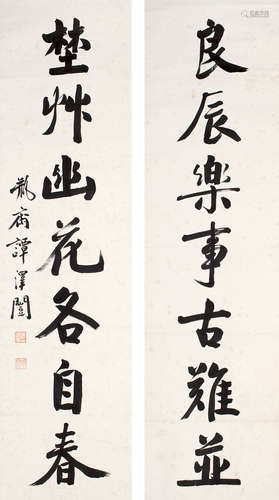 良辰樂事古難並
埜艸幽花各自春
瓻齋譚澤闓